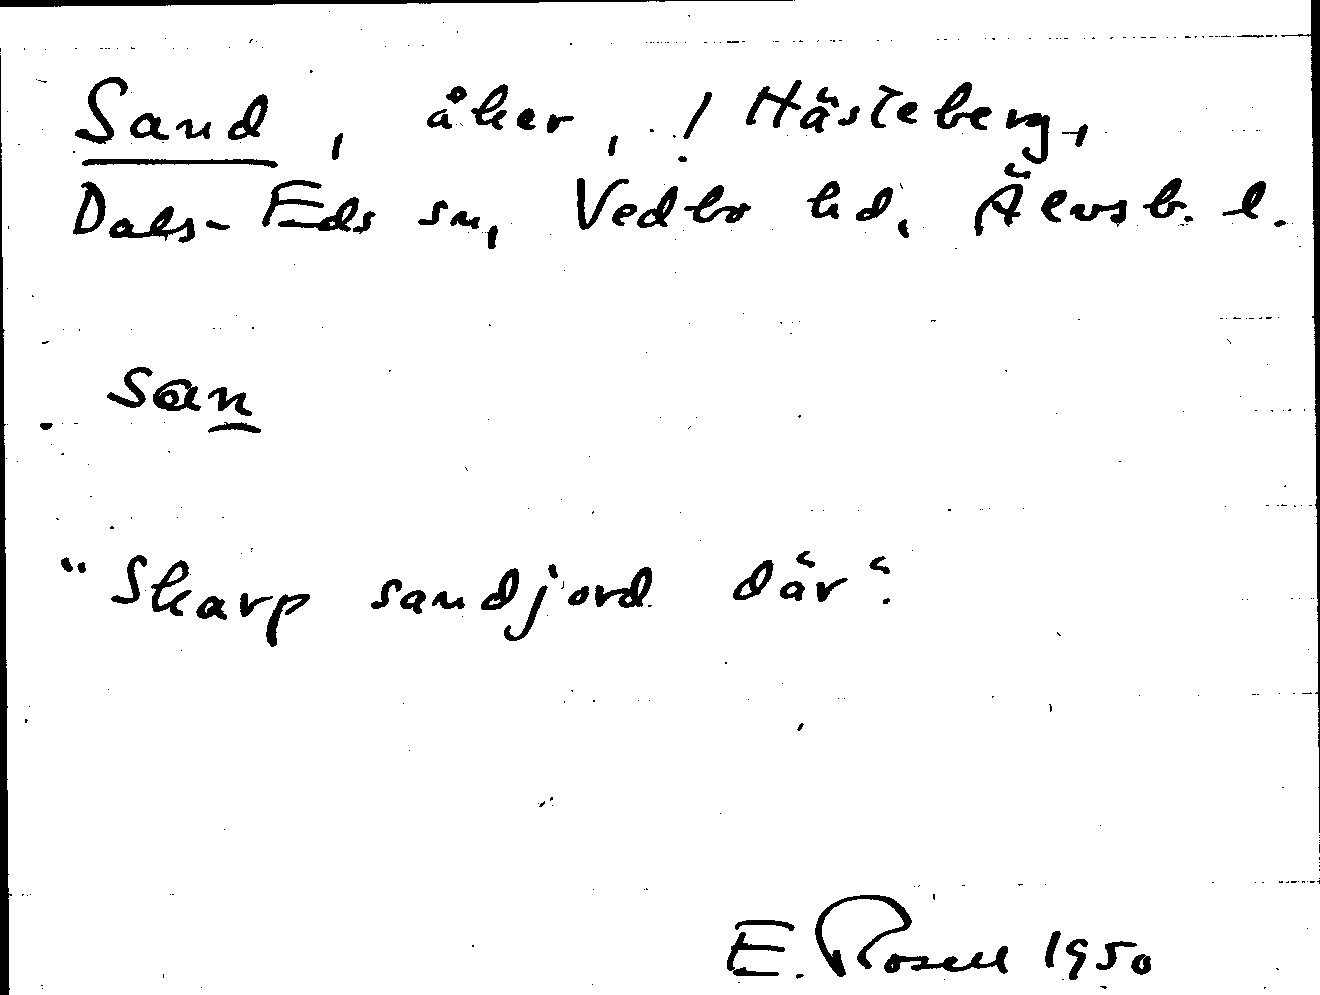 Sand, åker, / Hästeberg,
Dals-Eds sn, Vedbo hd, Älvsb. l.
san
"Skarp sandjord där".
E. Rosell 1950